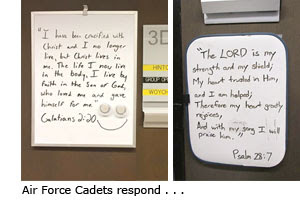 "I have been crucified with
Christ and I no longer
live, but Christ lives in
me. The life I now live
in the body, I live by
faith in the Son of God,
who loved me and gave
himself for me"
Galatians 2:20
3D
HINTO
GROUP OP
WOYCH
"The LORD is my
strength and my shield;
My heart trusted in Him,
and I am helped;
Therefore my heart greatly
rejoices,
And with my song I will
praise him."
Psalm 28:7
Air Force Cadets respond . . .